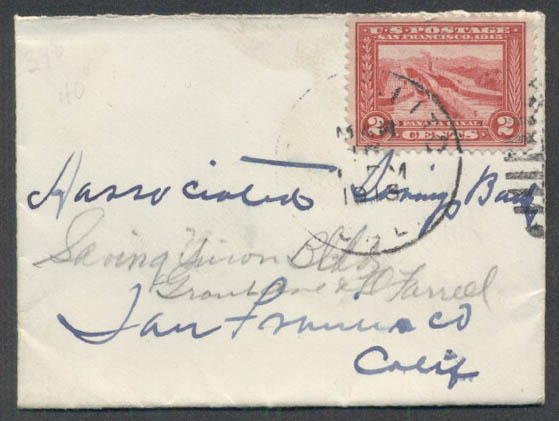 290
40
U.S. POSTAGE
SAN FRANCISCO, 1915
PANAMA CANAL
2 CENTS 2
MAR
M
Hassociated Savings Bank
Saving Union Bldg
Grant ave & O'Farrell
San Francisco
Calif